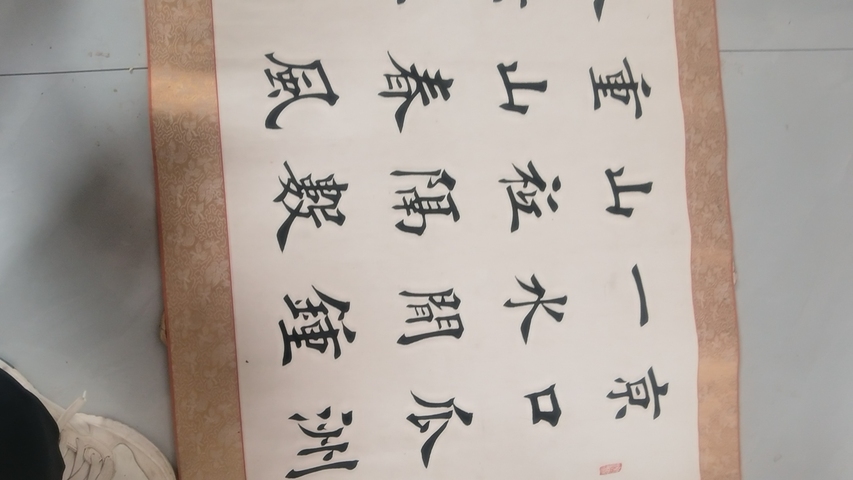 京口瓜洲
一水間鐘
山祗隔數
重山春風